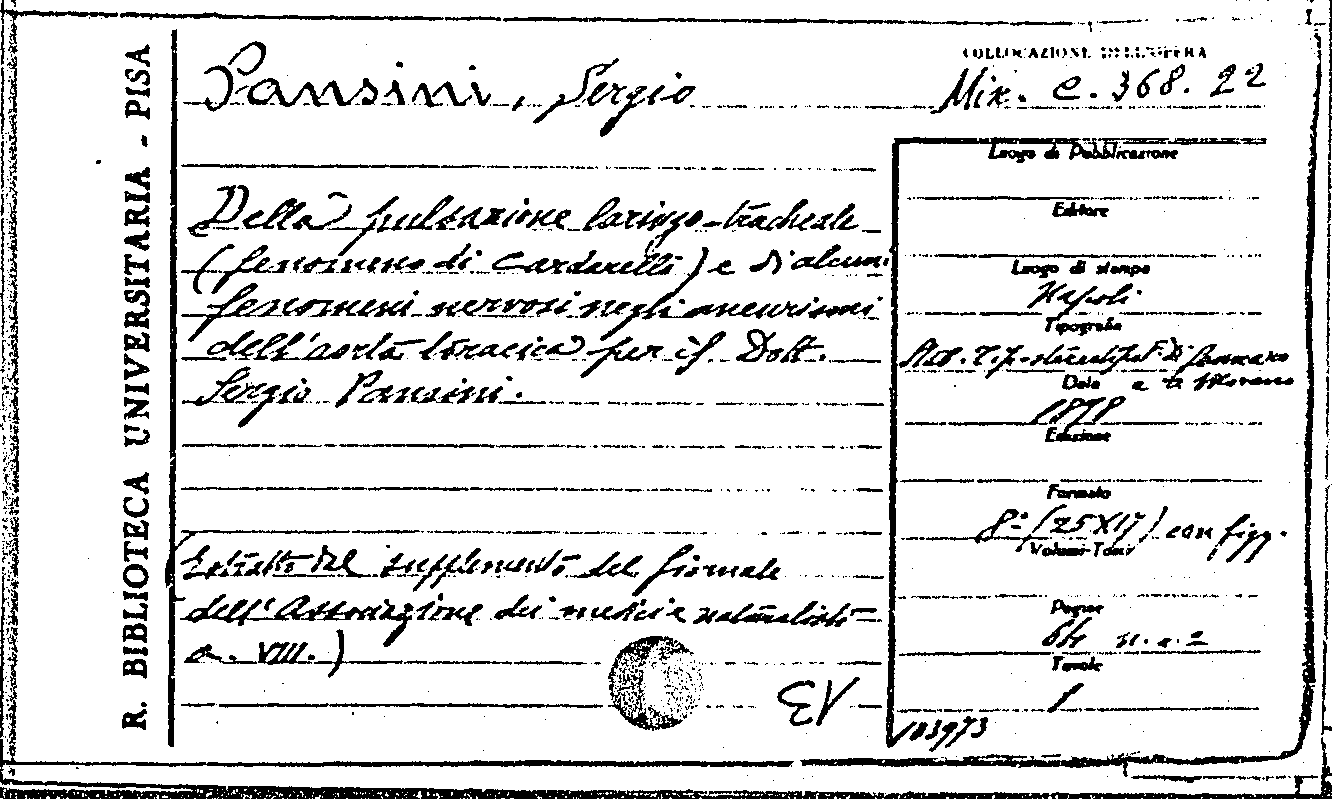 R. BIBLIOTECA UNIVERSITARIA - PISA
COLLOCAZIONE DELL'OPERA
Pansini, Sergio
Mix. C. 368. 22
Della pulsazione laringo-tracheale
(fenomeno di Cardarelli) e di alcuni
fenomeni nervosi negli aneurismi
dell'aorta toracica per il Dott.
Sergio Pansini.
(Estratto dal supplemento del giornale
dell'Associazione dei medici e naturalisti
a. VIII.)
EV
Luogo di Pubblicazione
Editore
Luogo di stampa
Napoli
Tipografia
Data
Edizione
Formato
8° (25X17) con figg.
Volumi-Tomi
Pagine
64 n. a. 2
Tavole
1
103973